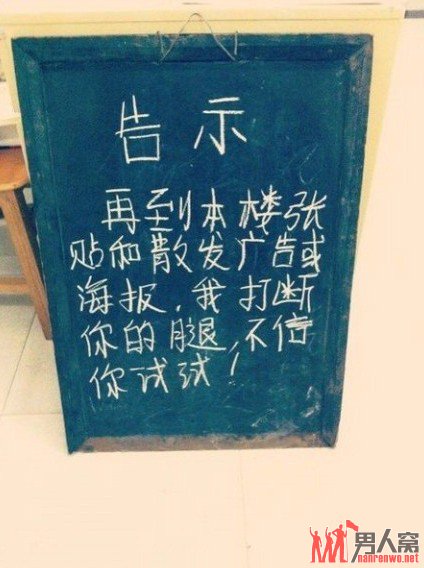 告示
再到本楼张
贴和散发广告或
海报,我打断
你的腿,不信
你试试!
男人窝
nanrenwo.net